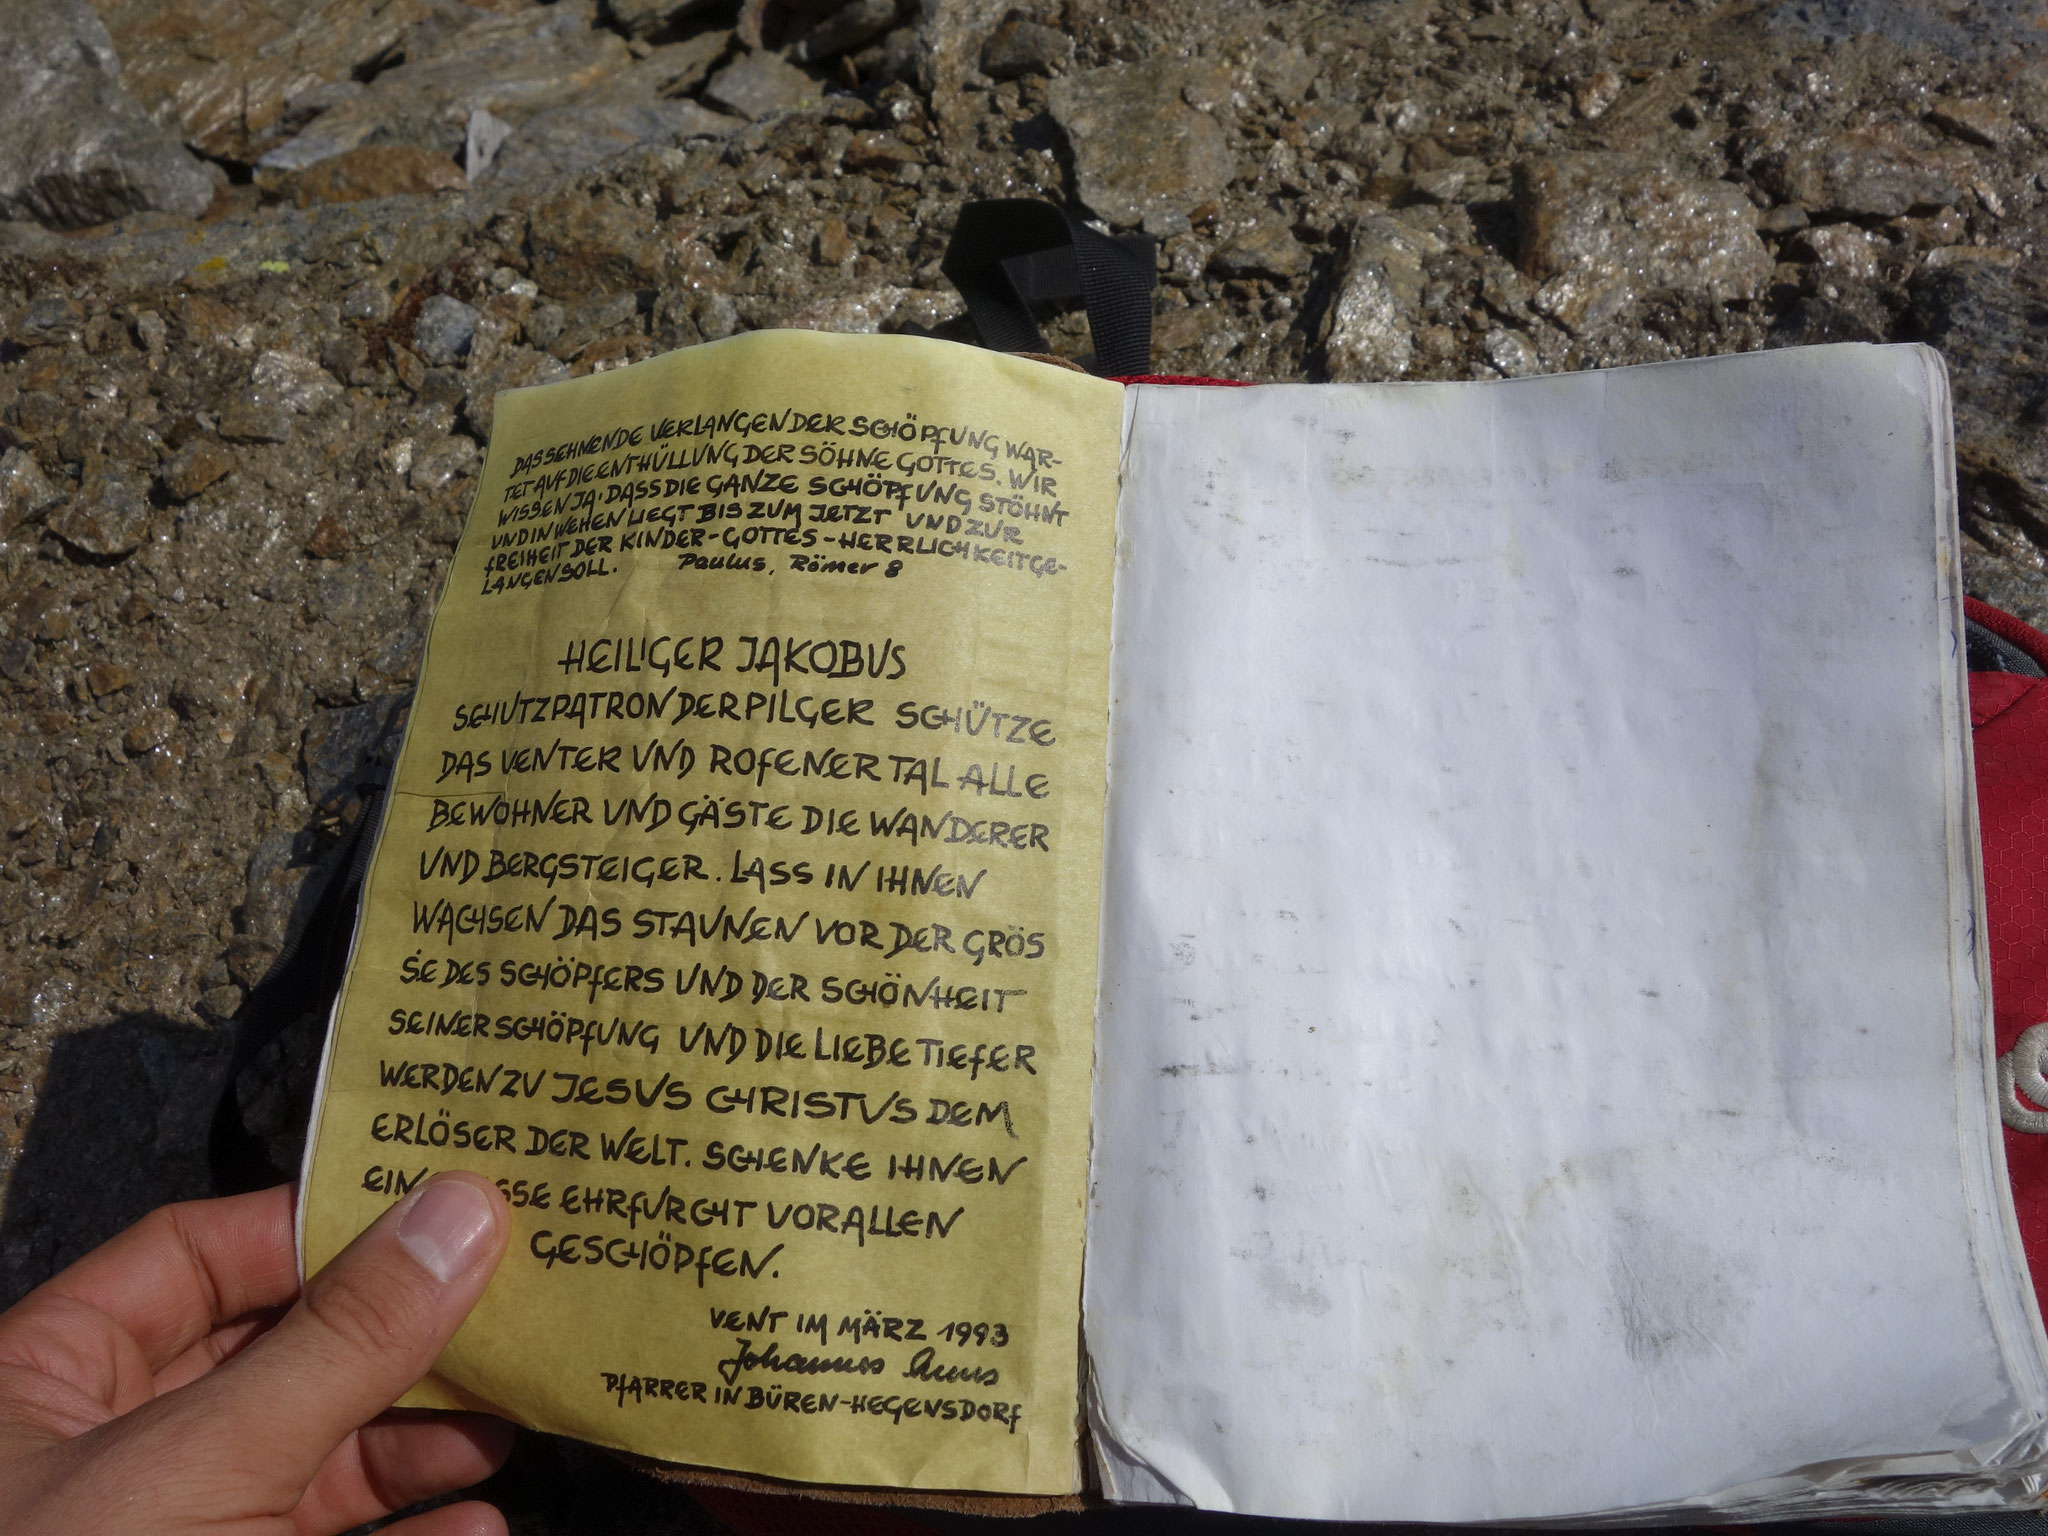 DAS SEHNENDE VERLANGEN DER SCHÖPFUNG WAR-
TET AUF DIE ENTHÜLLUNG DER SÖHNE GOTTES. WIR
WISSEN JA, DASS DIE GANZE SCHÖPFUNG STÖHNT
UND IN WEHEN LIEGT BIS ZUM JETZT UND ZUR
FREIHEIT DER KINDER-GOTTES-HERRLICHKEIT GE-
LANGEN SOLL. Paulus, Römer 8
HEILIGER JAKOBUS
SCHUTZPATRON DER PILGER SCHÜTZE
DAS VENTER UND ROFENER TAL ALLE
BEWOHNER UND GÄSTE DIE WANDERER
UND BERGSTEIGER. LASS IN IHNEN
WACHSEN DAS STAUNEN VOR DER GRÖS
SE DES SCHÖPFERS UND DER SCHÖNHEIT
SEINER SCHÖPFUNG UND DIE LIEBE TIEFER
WERDEN ZU JESUS CHRISTUS DEM
ERLÖSER DER WELT. SCHENKE IHNEN
EHRFURCHT VOR ALLEN
GESCHÖPFEN.
VENT IM MÄRZ 1993
Johannes
PFARRER IN BÜREN-HEGENSDORF